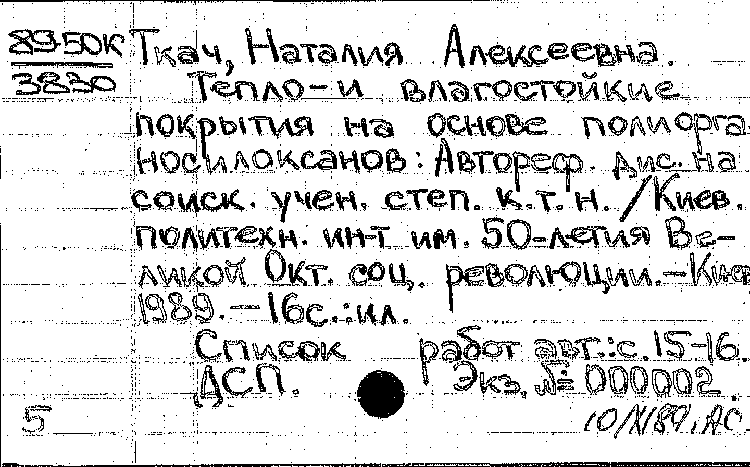 89-50К Ткач, Наталия Алексеевна.
3830 Тепло- и влагостойкие
покрытия на основе полиорга
носилоксанов: Автореф. дис. на
соиск. учен. степ. к.т.н. /Киев.
политехн. ин-т им. 50-летия Ве-
ликой Окт. соц. революции. - Киев
1989. - 16с.: ил.
Список работ авт.: с. 15-16.
ДСП. Экз. № 000002.
5 АС.